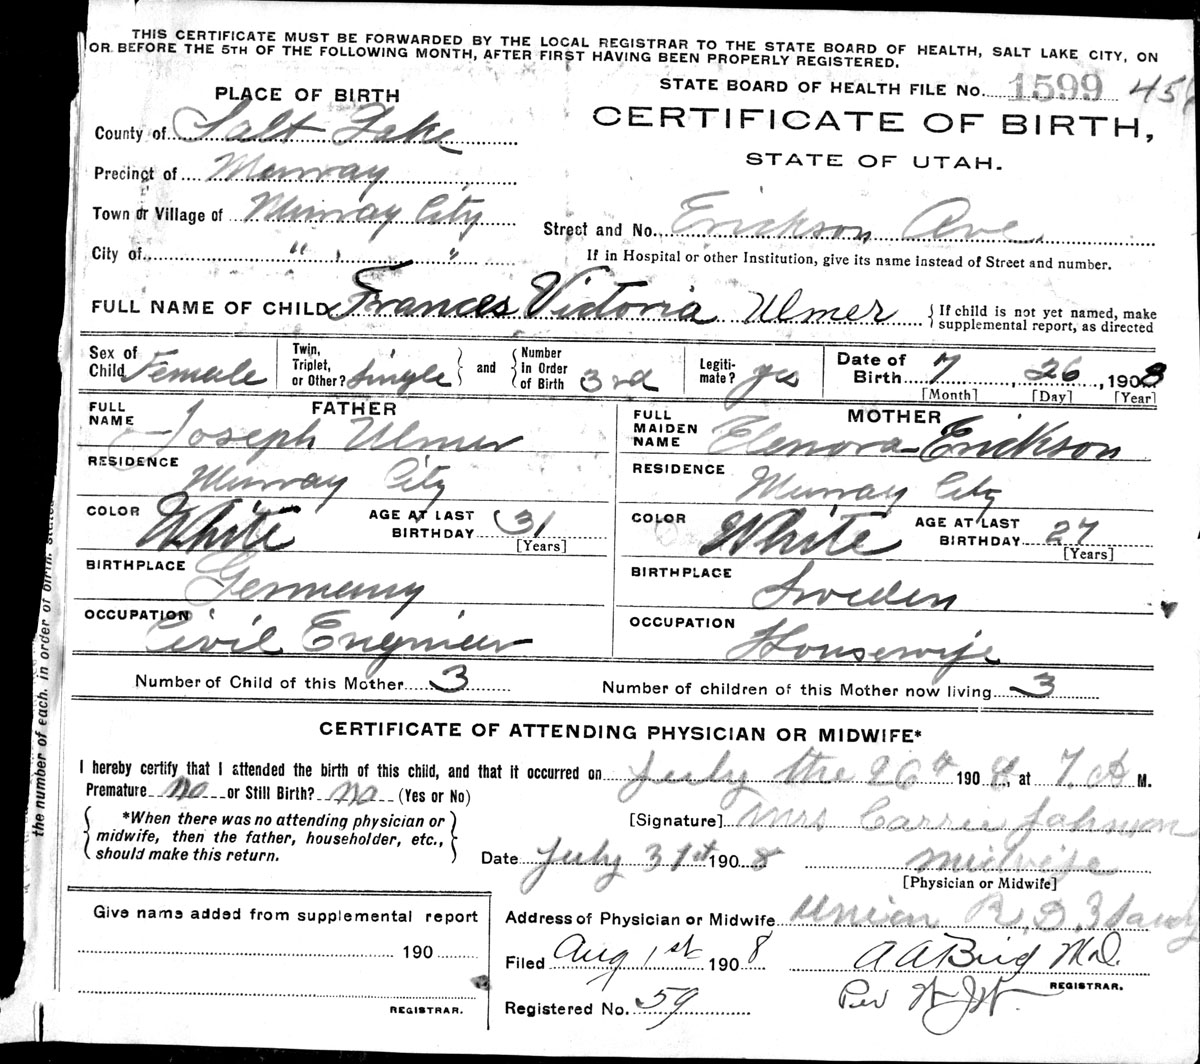 THIS CERTIFICATE MUST BE FORWARDED BY THE LOCAL REGISTRAR TO THE STATE BOARD OF HEALTH, SALT LAKE CITY, ON
OR BEFORE THE 5TH OF THE FOLLOWING MONTH, AFTER FIRST HAVING BEEN PROPERLY REGISTERED.
STATE BOARD OF HEALTH FILE No. 1599
PLACE OF BIRTH
CERTIFICATE OF BIRTH,
STATE OF UTAH.
County of Salt Lake
Precinct of Murray
Town or Village of Murray City
City of " , "
Street and No. Erickson Ave.
If in Hospital or other Institution, give its name instead of Street and number.
FULL NAME OF CHILD Frances Victoria Ulmer
{ If child is not yet named, make
supplemental report, as directed
Sex of Child Female
Twin, Triplet, or Other? Single } and { Number In Order of Birth 3rd
Legitimate? yes
Date of Birth 7, 26, 1908
[Month] [Day] [Year]
FATHER
FULL NAME Joseph Ulmer
RESIDENCE Murray City
COLOR White AGE AT LAST BIRTHDAY 31
[Years]
BIRTHPLACE Germany
OCCUPATION Civil Engineer
MOTHER
FULL MAIDEN NAME Elenora Erickson
RESIDENCE Murray City
COLOR White AGE AT LAST BIRTHDAY 27
[Years]
BIRTHPLACE Sweden
OCCUPATION Housewife
Number of Child of this Mother 3
Number of children of this Mother now living 3
CERTIFICATE OF ATTENDING PHYSICIAN OR MIDWIFE*
I hereby certify that I attended the birth of this child, and that it occurred on July the 26th 1908, at 7 A M.
Premature no or Still Birth? no (Yes or No)
{ *When there was no attending physician or
midwife, then the father, householder, etc.,
should make this return. }
[Signature] Mrs Carrie Johnson
Date July 31st 1908 Midwife
[Physician or Midwife]
Give name added from supplemental report
190
REGISTRAR.
Address of Physician or Midwife Union R.D. 3 Sandy
Filed Aug 1st 1908 A A Bird M.D.
REGISTRAR.
Registered No. 59 Per
the number of each, in order of birth, stated